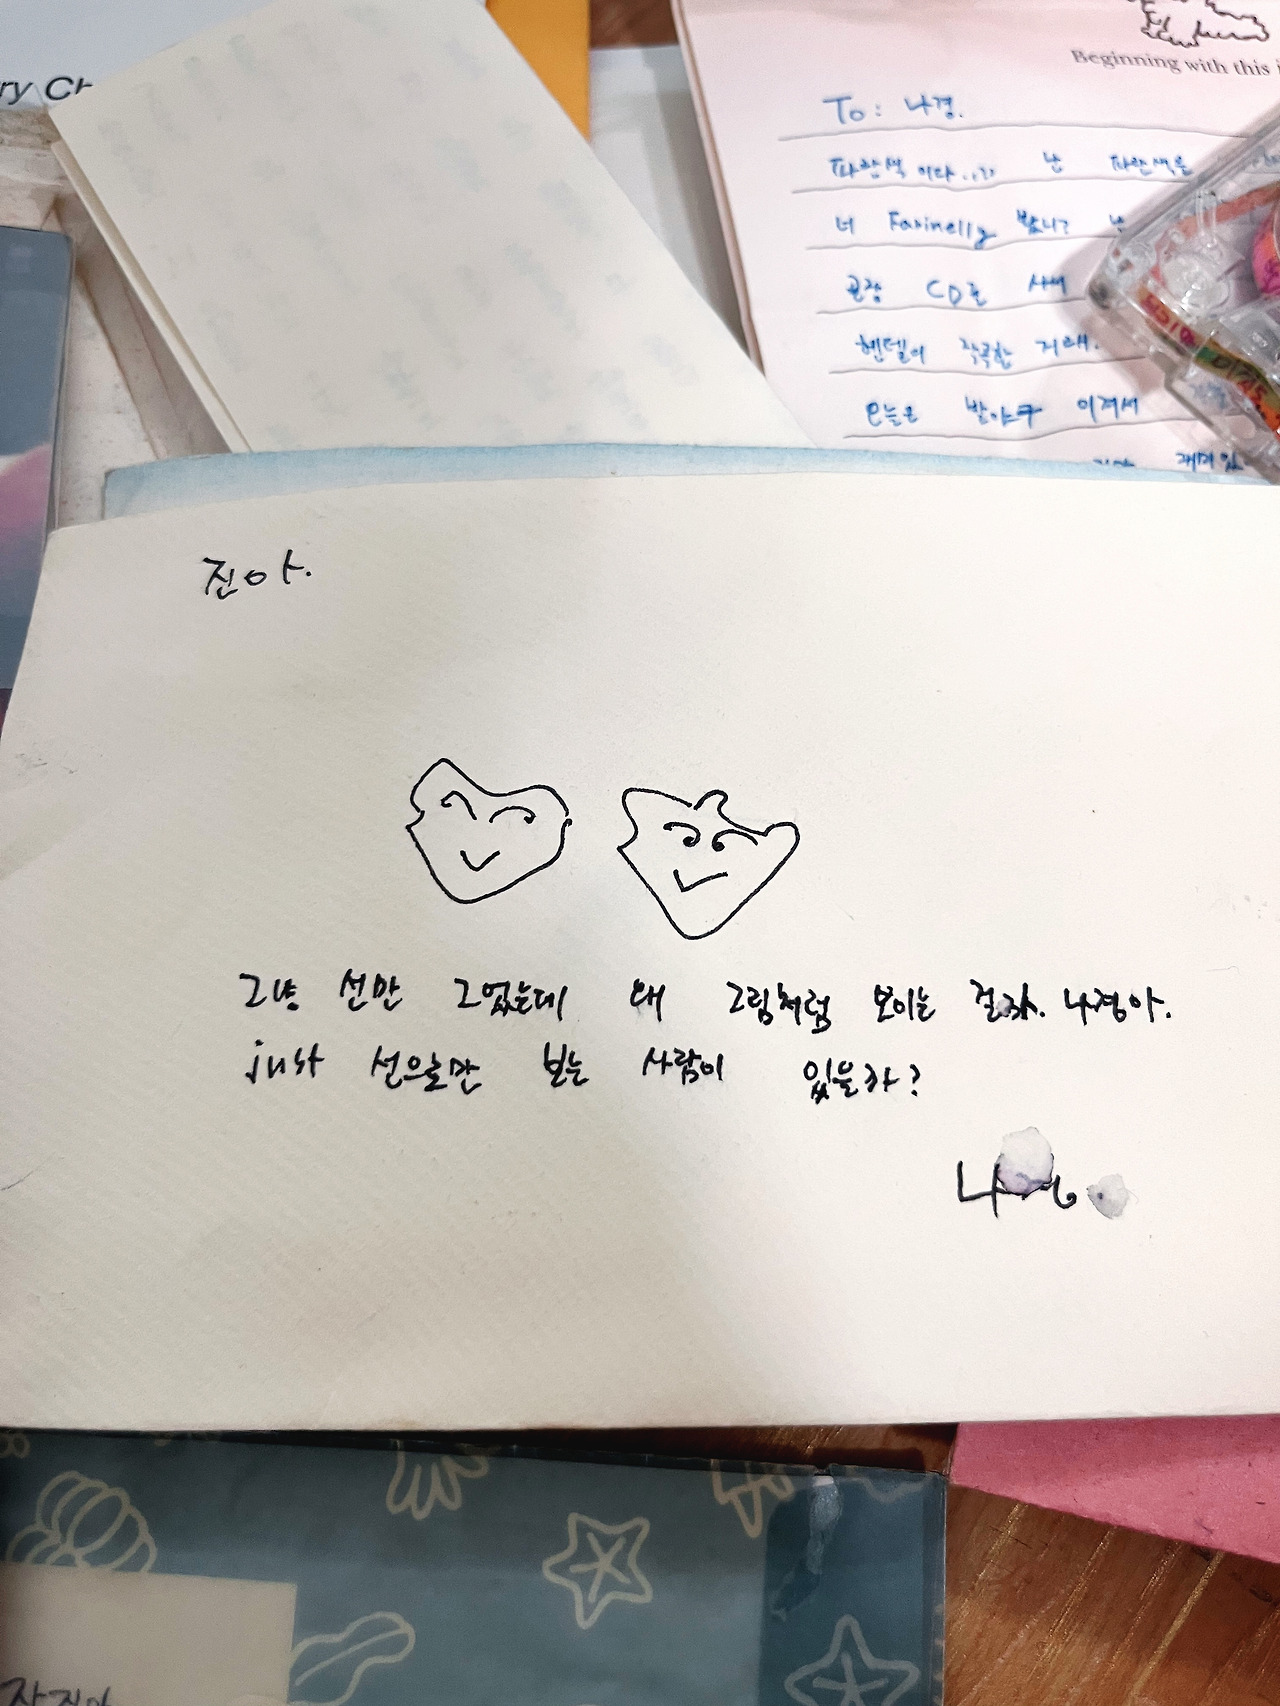 ry Ch
Beginning with this i
To: 나경.
파란색이다.. 난 파란색을
너 Farinelly 봤니? 난
곧장 CD를 사서
헨델이 작곡한 거래.
오늘은 발야구 이겨서
재미있
진아.
그냥 선만 그었는데 왜 그림처럼 보이는 걸까. 나경아.
just 선으로만 보는 사람이 있을까?